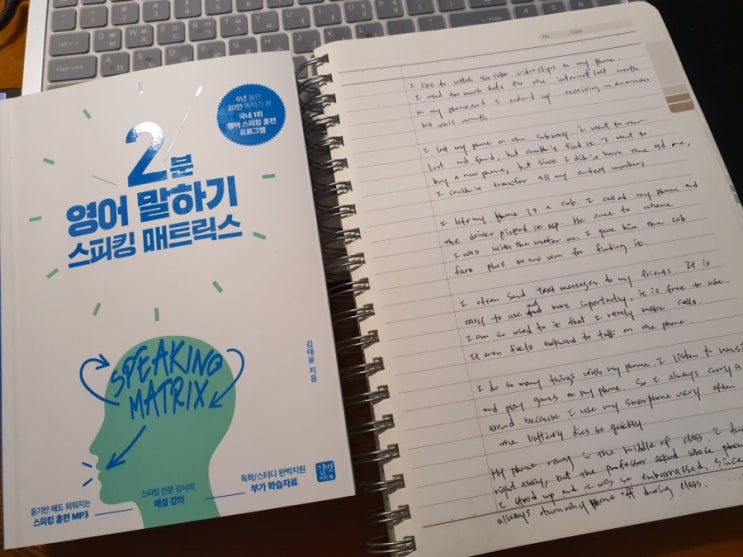 6년 동안
20만 독자가 본
국내 1위
영어 스피킹 훈련
프로그램
2분
영어 말하기
스피킹 매트릭스
SPEAKING
MATRIX
김태윤 지음
듣기만 해도 외워지는
스피킹 훈련 MP3
스피킹 전문 강사의
해설 강의
독학/스터디 완벽지원
부가 학습자료
길벗
Caps Lock
I like to watch YouTube video clips on my phone.
I used too much data for the internet last month
on my phone and I ended up receiving an enormous
bill this month.
I lost my phone on the subway. I went to the
lost and found, but couldn't find it. I went to
buy a new phone, but since I didn't have the old one,
I couldn't transfer all my contact numbers.
I left my phone in a cab. I called my phone and
the driver picked it up. He came to where
I was with the meter on. I gave him the cab
fare plus 30,000 won for finding it.
I often send text messages to my friends. It is
easy to use and more importantly, it is free to use.
I am so used to it that I rarely make calls.
It even feels awkward to talk on the phone.
I do so many things with my phone. I listen to music
and play games on my phone. So I always carry a
around because I use my smartphone very often
the battery dies so quickly.
My phone rang in the middle of class. I
right away, but the professor asked whose phone
I stood up and I was so embarrassed. Since
always turn my phone off during class. ...